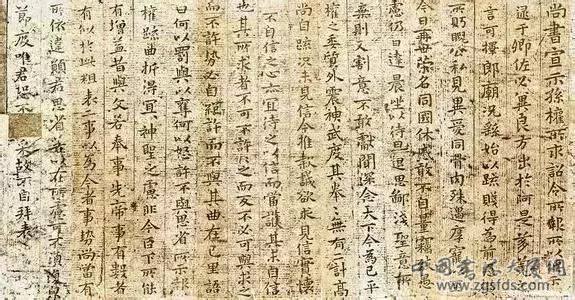 尚書宣示孫權所求詔令所報所以
逮于卿佐必冀良方出於阿是芻蕘
言可擇郎廟況繇始以疏賤得為前
所盼睨公私見異愛同骨肉殊遇厚寵
今日再世榮名同國休慼敢不自量竊愚
慮仍日達晨坐以待旦退思鄙淺聖意所
棄則又割意不敢獻聞深念天下今為已平
權之委質外震神武度其拳拳無有二計高
尚自疏況未見信今推款誠欲求見信實懷
不自信之心亦宜待之以信而當護其未自信
也其所求者不可不許許之而反不必可與求之
而不許勢必自絕許而不與其曲在己里語
曰何以罰與以奪何以怒許不與思省所示報
權疏曲折得宜宜神聖之慮非今臣下所能
有增益昔與文若奉事先帝事有數者
有似於此粗表二事以為今者事勢尚當有
所依違願君思省若以在所慮可不須
節度唯君恐不采故不自拜表
中国书法大展网
www.zgsfds.com